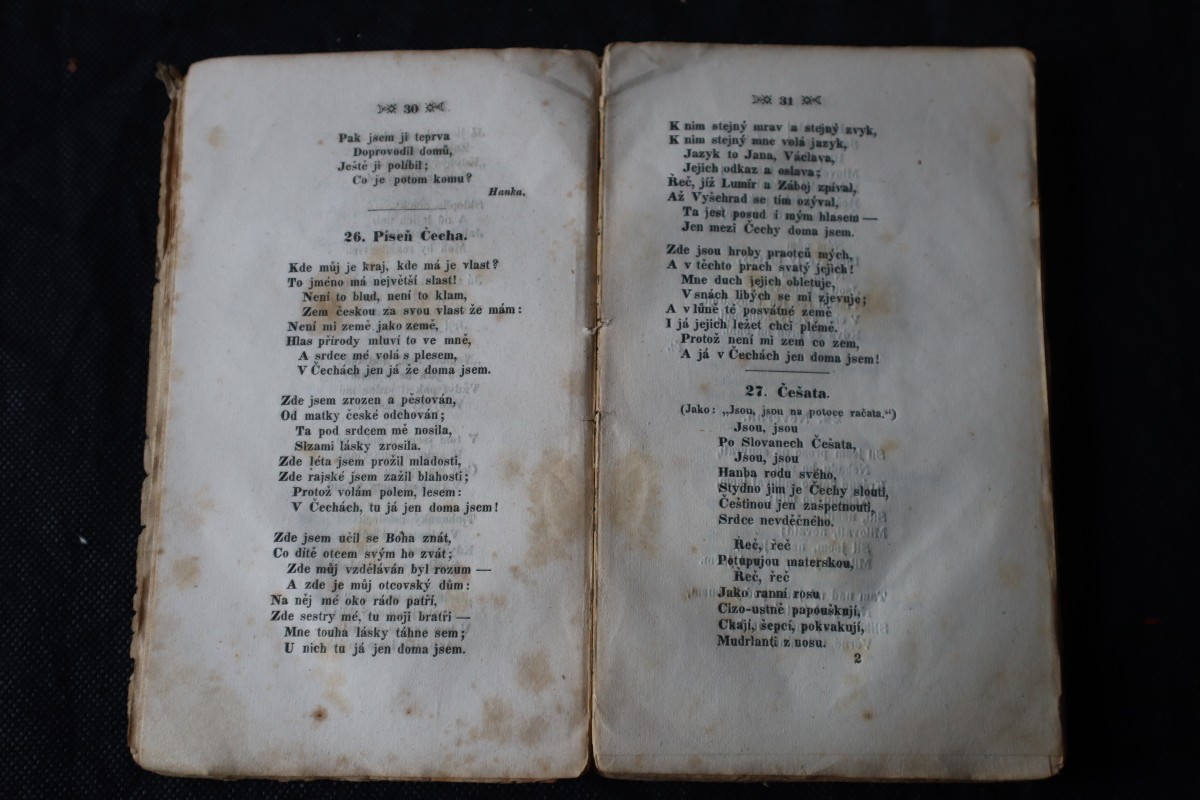 30
Pak jsem ji teprva
Doprovodil domů,
Ještě ji políbil;
Co je potom komu?
Hanka.
26. Píseň Čecha.
Kde můj je kraj, kde má je vlast?
To jméno má největší slast!
Není to blud, není to klam,
Zem českou za svou vlast že mám:
Není mi země jako země,
Hlas přírody mluví to ve mně,
A srdce mé volá s plesem,
V Čechách jen já že doma jsem.
Zde jsem zrozen a pěstován,
Od matky české odchován;
Ta pod srdcem mě nosila,
Slzami lásky zrosila.
Zde léta jsem prožil mladosti,
Zde rajské jsem zažil blahosti;
Protož volám polem, lesem:
V Čechách, tu já jen doma jsem!
Zde jsem učil se Boha znát,
Co dítě otcem svým ho zvát;
Zde můj vzděláván byl rozum —
A zde je můj otcovský dům:
Na něj mé oko rádo patří,
Zde sestry mé, tu moji bratři —
Mne touha lásky táhne sem;
U nich tu já jen doma jsem.
31
K nim stejný mrav a stejný zvyk,
K nim stejný mne volá jazyk,
Jazyk to Jana, Václava,
Jejich odkaz a oslava;
Řeč, jíž Lumír a Záboj zpíval,
Až Vyšehrad se tím ozýval,
Ta jest posud i mým hlasem —
Jen mezi Čechy doma jsem.
Zde jsou hroby praotců mých,
A v těchto prach svatý jejich!
Mne duch jejich obletuje,
V snách libých se mi zjevuje;
A v lůně té posvátné země
I já jejich ležet chci plémě.
Protož není mi zem co zem,
A já v Čechách jen doma jsem!
27. Češata.
(Jako: „Jsou, jsou na potoce račata.“)
Jsou, jsou
Po Slovanech Češata,
Jsou, jsou
Hanba rodu svého,
Stydno jim je Čechy slouti,
Češtinou jen zašpetnouti,
Srdce nevděčného.
Řeč, řeč
Potupujou materskou,
Řeč, řeč
Jako ranní rosu
Cizo-ustně papouškují,
Ckají, šepcí, pokvakují,
Mudrlanti z nosu.
2